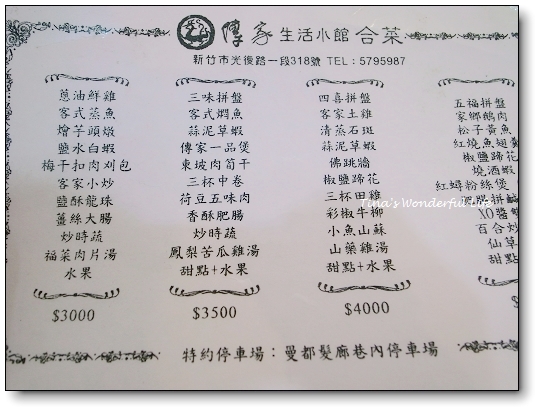 傳家 生活小館 合菜
新竹市光復路一段318號 TEL：5795987
蔥油鮮雞
客式蒸魚
燴芋頭燉
鹽水白蝦
梅干扣肉刈包
客家小炒
鹽酥龍珠
薑絲大腸
炒時蔬
福菜肉片湯
水果
$3000
三味拼盤
客式燜魚
蒜泥草蝦
傳家一品煲
東坡肉筍干
三杯中卷
荷豆五味肉
香酥肥腸
炒時蔬
鳳梨苦瓜雞湯
甜點+水果
$3500
四喜拼盤
客家土雞
清蒸石斑
蒜泥草蝦
佛跳牆
椒鹽蹄花
三杯田雞
彩椒牛柳
小魚山蘇
山藥雞湯
甜點+水果
$4000
五福拼盤
家鄉鵝肉
松子黃魚
紅燒魚翅
椒鹽蹄花
燒酒蝦
紅蟳粉絲煲
XO醬
百合炒
仙草
甜點
特約停車場：曼都髮廊巷內停車場
Tina's Wonderful Life